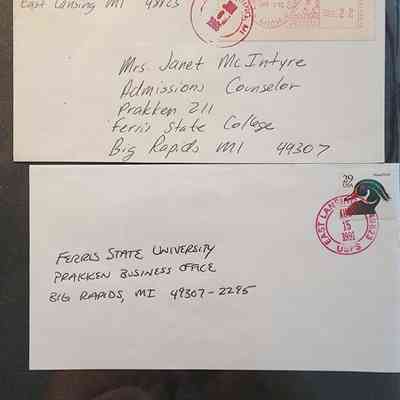 East Lansing MI
Mrs. Janet McIntyre
Admissions Counselor
Prakken 211
Ferris State College
Big Rapids MI 49307
29
USA
EAST LANSING
15
USPS
FERRIS STATE UNIVERSITY
PRAKKEN BUSINESS OFFICE
BIG RAPIDS, MI 49307-2295